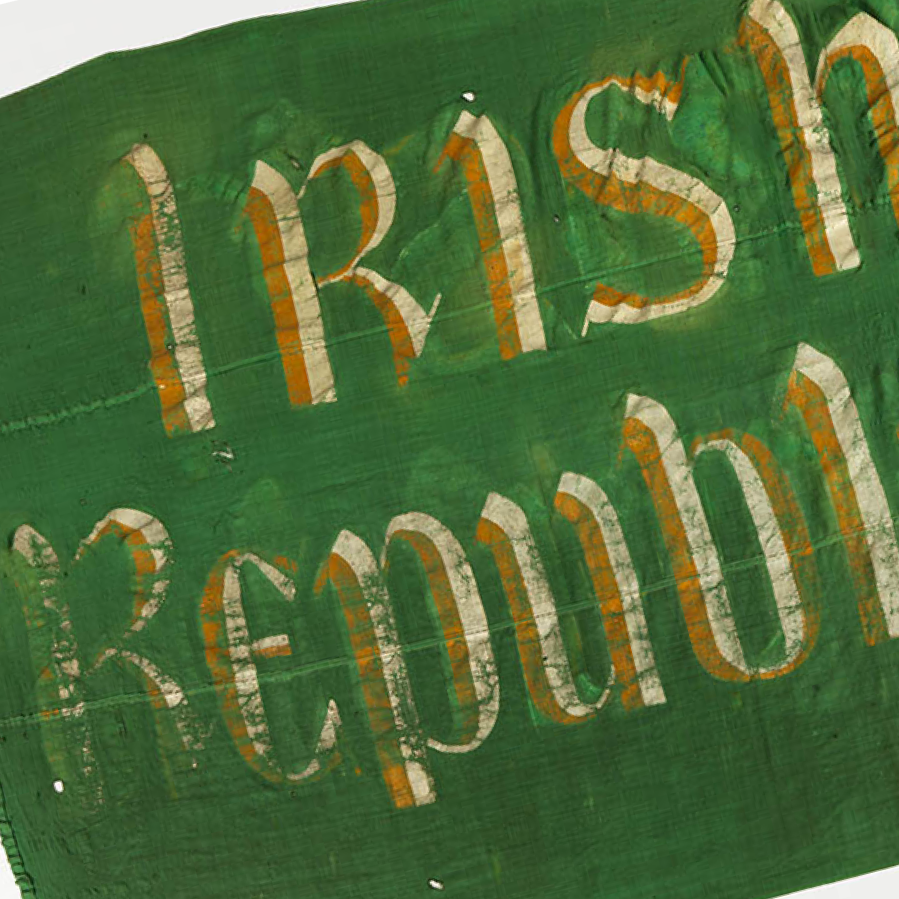 IRISh
Republi